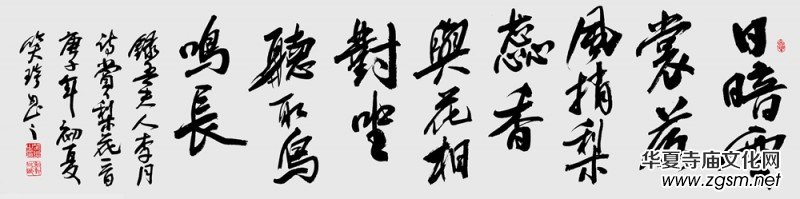 日暗雲
裳薄
風捎梨
蕊香
與花相
對坐
聽取鳥
鳴長
錄吾夫人李月
詩賞梨花一首
庚子年初夏
华夏寺庙文化网
www.zgsm.net